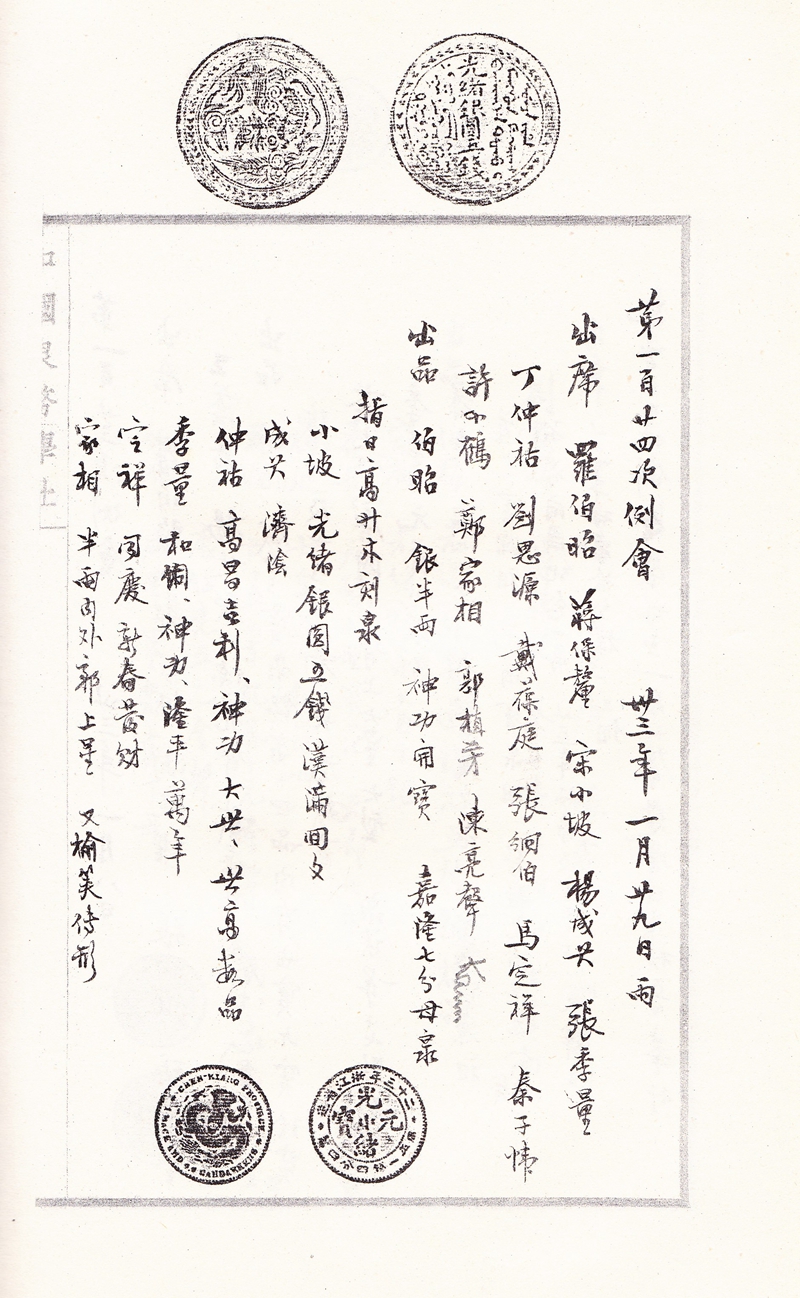 光緒銀圓五錢
第一百廿四次例會　卅三年一月廿九日雨
出席　羅伯昭　蔣伯釐　宋小坡　楊成麒　張季量
丁仲祜　劉思源　戴葆庭　張絅伯　馬定祥　秦子幃
許小鶴　鄭家相　郭植芳　陳亮聲
出品　伯昭　銀半兩　神功開寶　嘉隆七分母泉
指日高升木刻泉
小坡　光緒銀圓五錢漢滿回文
濟陰
仲祜　高昌吉利、神功　大世、世高数品
季量　和銅、神功、隆平萬年
定祥　同慶　新春發財
家相　半兩內外郭上星　又榆莢傳形
二十三年浙江省造
光緒元寶
小
CHEH-KIANG PROVINCE
1 MACE AND 4.4 CANDAREENS